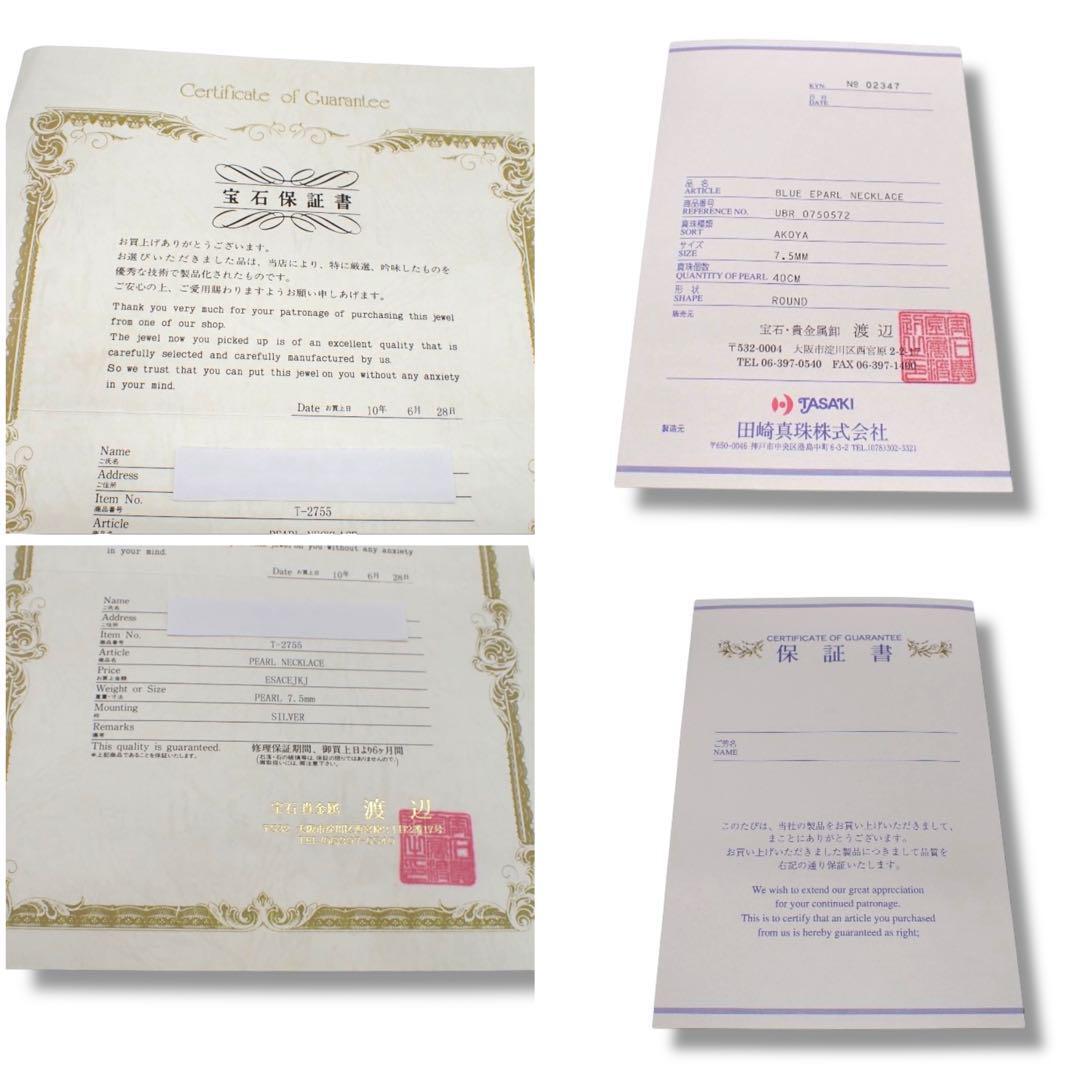 Certificate of Guarantee
宝石保証書
お買上げありがとうございます。
お選びいただきました品は、当店により、特に厳選、吟味したものを
優秀な技術で製品化されたものです。
ご安心の上、ご愛用賜わりますようお願い申しあげます。
Thank you very much for your patronage of purchasing this jewel
from one of our shop.
The jewel now you picked up is of an excellent quality that is
carefully selected and carefully manufactured by us.
So we trust that you can put this jewel on you without any anxiety
in your mind.
Date お買上日 10年 6月 28日
Name
ご氏名
Address
ご住所
Item No.
商品番号 T-2755
Article
商品名 PEARL NECKLACE
KYN. № 02347
日付
DATE
品名
ARTICLE BLUE EPARL NECKLACE
商品番号
REFERENCE NO. UBR 0750572
真珠種類
SORT AKOYA
サイズ
SIZE 7.5MM
真珠個数
QUANTITY OF PEARL 40CM
形状
SHAPE ROUND
販売元
宝石・貴金属卸 渡辺
〒532-0004 大阪市淀川区西宮原2-2-17
TEL 06-397-0540 FAX 06-397-1400
TASAKI
製造元 田崎真珠株式会社
〒650-0046 神戸市中央区港島中町6-3-2 TEL.(078)302-3321
in your mind. jewel on you without any anxiety
Date お買上日 10年 6月 28日
Name
ご氏名
Address
ご住所
Item No.
商品番号 T-2755
Article
商品名 PEARL NECKLACE
Price
お買上金額 ESACEJKJ
Weight or Size
重量・寸法 PEARL 7.5mm
Mounting
枠 SILVER
Remarks
備考
This quality is guaranteed. 修理保証期間、御買上日より6ヶ月間
※上記商品であることを保証いたします。
宝石・貴金属 渡辺
CERTIFICATE OF GUARANTEE
保証書
ご芳名
NAME
このたびは、当社の製品をお買い上げいただきまして、
まことにありがとうございます。
お買い上げいただきました製品につきまして品質を
右記の通り保証いたします。
We wish to extend our great appreciation
for your continued patronage.
This is to certify that an article you purchased
from us is hereby guaranteed as right;